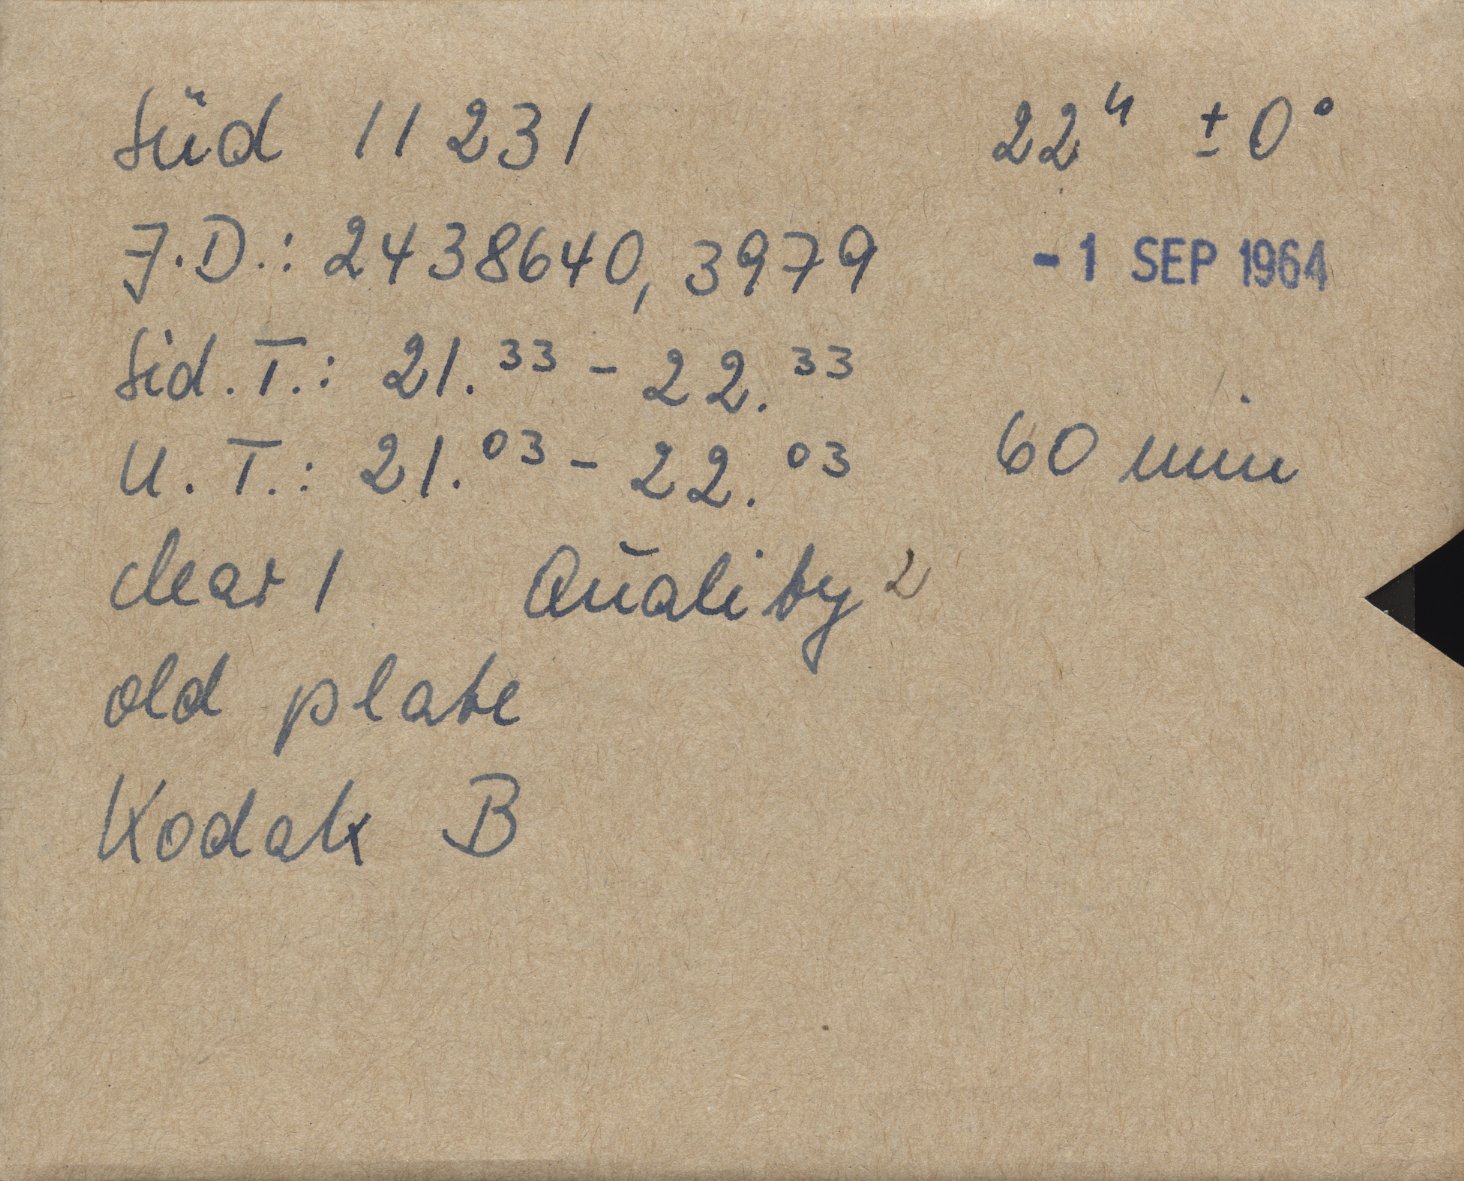 Süd 11231 22ʰ ±0°
J.D.: 2438640,3979 -1 SEP 1964
Sid.T.: 21.³³ - 22.³³
U.T.: 21.⁰³ - 22.⁰³ 60 min
clear 1 Quality 2
old plate
Kodak B